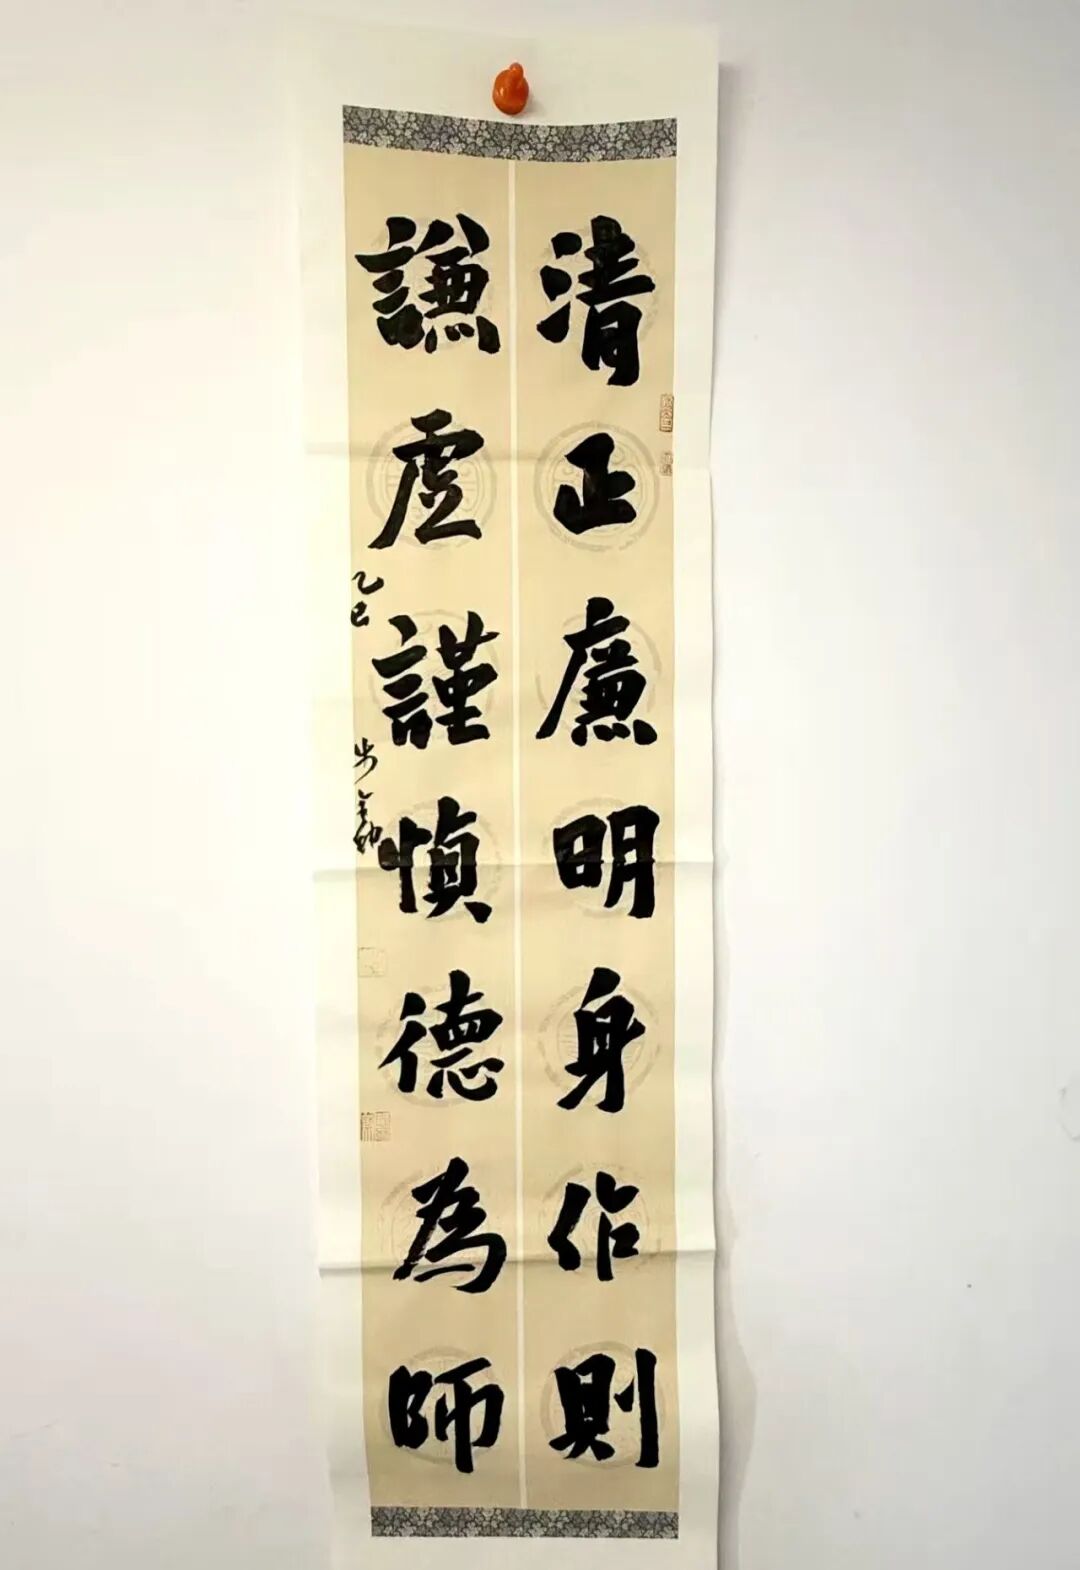 清正廉明身作則
謙虛謹慎德為師
乙巳